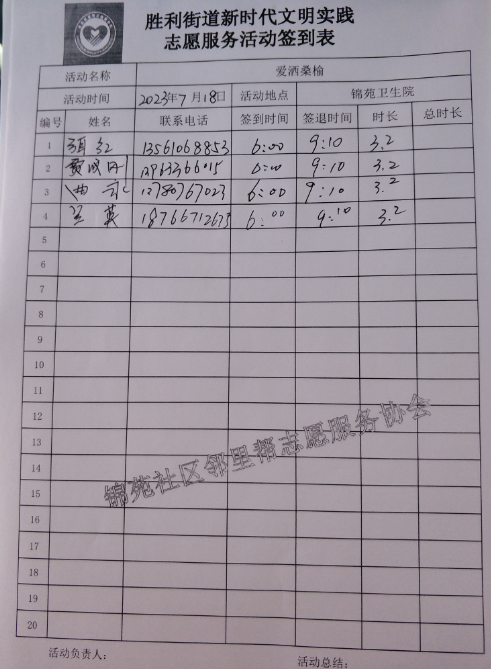 胜利街道新时代文明实践
志愿服务活动签到表
活动名称 爱洒桑榆
活动时间 2023年7月18日 活动地点 锦苑卫生院
编号 姓名 联系电话 签到时间 签退时间 时长 总时长
1 红 13561068853 6:00 9:10 3.2
2 6:00 9:10 3.2
3 6:00 9:10 3.2
4 英 18766712673 6:00 9:10 3.2
5
6
7
8
9
10
11
12
13
14
15
16
17
18
19
20
锦苑社区邻里帮志愿服务协会
活动负责人: 活动总结: